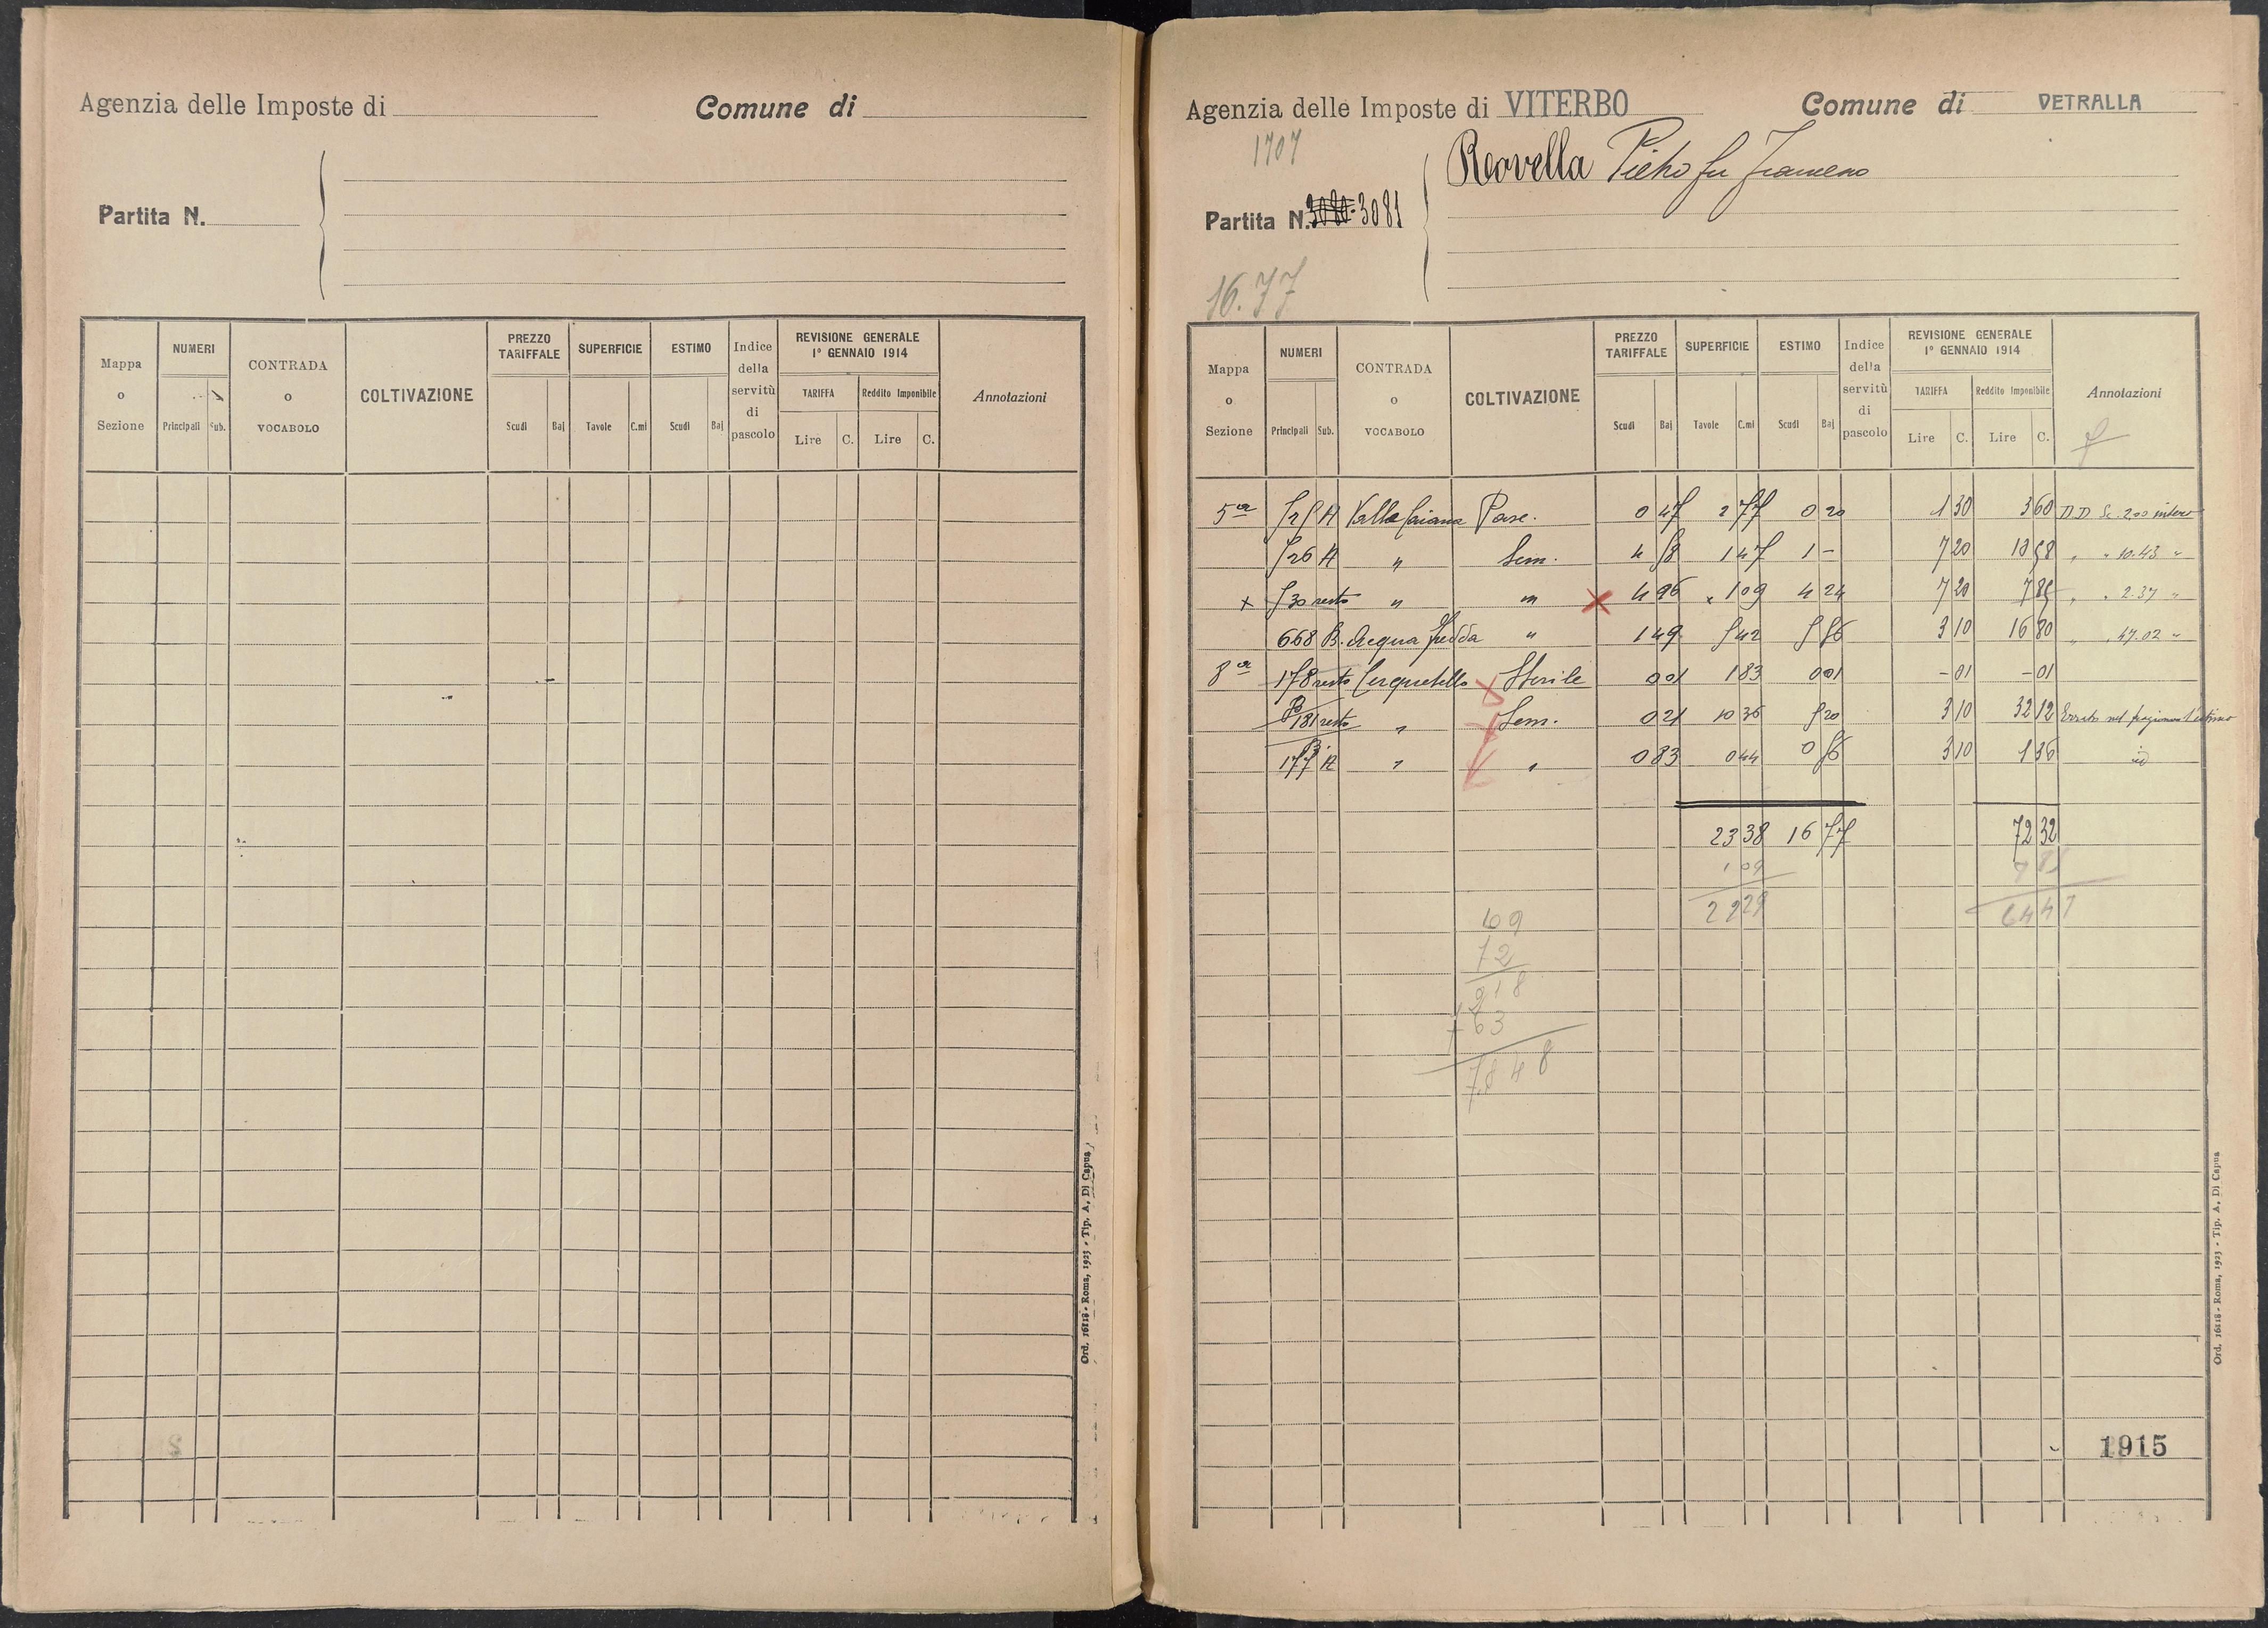 Agenzia delle Imposte di
Comune di
Partita N.
Mappa o Sezione
NUMERI
Principali Sub.
CONTRADA o VOCABOLO
COLTIVAZIONE
PREZZO TARIFFALE
Scudi Baj
SUPERFICIE
Tavole C.mi
ESTIMO
Scudi Baj
Indice della servitù di pascolo
REVISIONE GENERALE
1° GENNAIO 1914
TARIFFA Reddito Imponibile
Lire C. Lire C.
Annotazioni
Ord. 16118 - Roma, 1923 - Tip. A. Di Capua
Agenzia delle Imposte di VITERBO
Comune di VETRALLA
1707
Pietro fu
Partita N. 3080. 3081
16.77
Mappa o Sezione
NUMERI
Principali Sub.
CONTRADA o VOCABOLO
COLTIVAZIONE
PREZZO TARIFFALE
Scudi Baj
SUPERFICIE
Tavole C.mi
ESTIMO
Scudi Baj
Indice della servitù di pascolo
REVISIONE GENERALE
1° GENNAIO 1914
TARIFFA Reddito Imponibile
Lire C. Lire C.
Annotazioni
5a 525 A Valle Caiana Pasc. 0 47 2 77 0 20 1 30 3 60 DD Sc. 2.00 intero
526 A " Sem. 4 58 1 47 1 - 7 20 10 58 " " 10.43 "
x 530 resto " " 4 96 1 09 4 24 7 20 7 85 " " 2.37 "
668 B. Acqua fredda " 1 49 5 42 5 56 3 10 16 80 " " 47.02 "
8a 178 resto Cerquetello Sterile 0 01 1 83 0 01 - 01 - 01
181 resto " Sem. 0 21 10 36 5 20 3 10 32 12
177 A " " 0 83 0 44 0 56 3 10 1 36 id
23 38 16 77 72 32
1 09 7 85
22 29 64 47
109
72
218
763
7848
1915